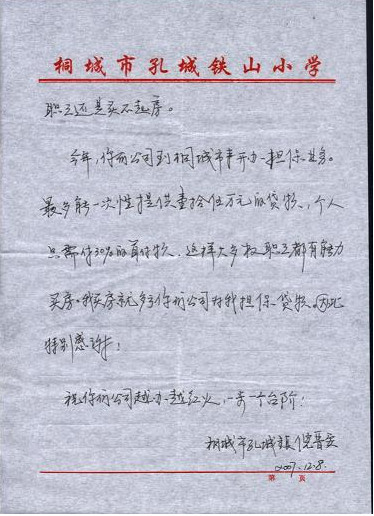 桐城市孔城铁山小学
职工还是买不起房。
今年,你们公司到桐城市来开办担保业务。
最多能一次性提供壹拾伍万元的贷款,个人
只需付30%的首付款,这样大多数职工都有能力
买房。我买房就多亏你们公司为我担保贷款,因此
特别感谢!
祝你们公司越办越红火,一步一个台阶!
桐城市孔城镇
2007.12.8.
第 页